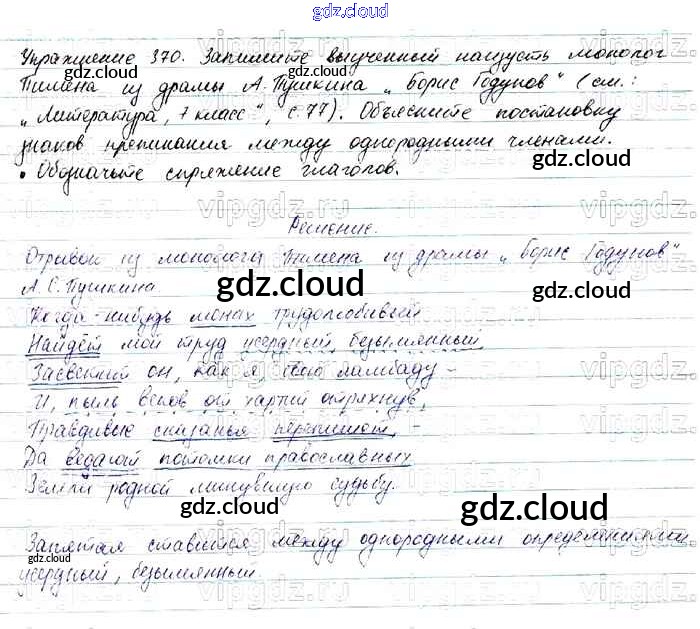 gdz.cloud
Упражнение 370. Запишите выученный наизусть монолог
Пимена из драмы А. Пушкина „Борис Годунов" (см.:
„Литература, 7 класс", с.77). Объясните постановку
знаков препинания между однородными членами.
• Обозначьте спряжение глаголов.
Решение.
Отрывок из монолога Пимена из драмы „Борис Годунов"
А.С. Пушкина
Когда-нибудь монах трудолюбивый
Найдёт мой труд усердный, безымянный,
Засветит он, как я, свою лампаду –
И, пыль веков от хартий отряхнув,
Правдивые сказанья перепишет, –
Да ведают потомки православных
Земли родной минувшую судьбу.
Запятая ставится между однородными определениями
усердный, безымянный.
gdz.cloud
gdz.cloud
gdz.cloud
gdz.cloud
gdz.cloud
gdz.cloud
gdz.cloud
gdz.cloud
vipgdz.ru
vipgdz.ru
vipgdz.ru